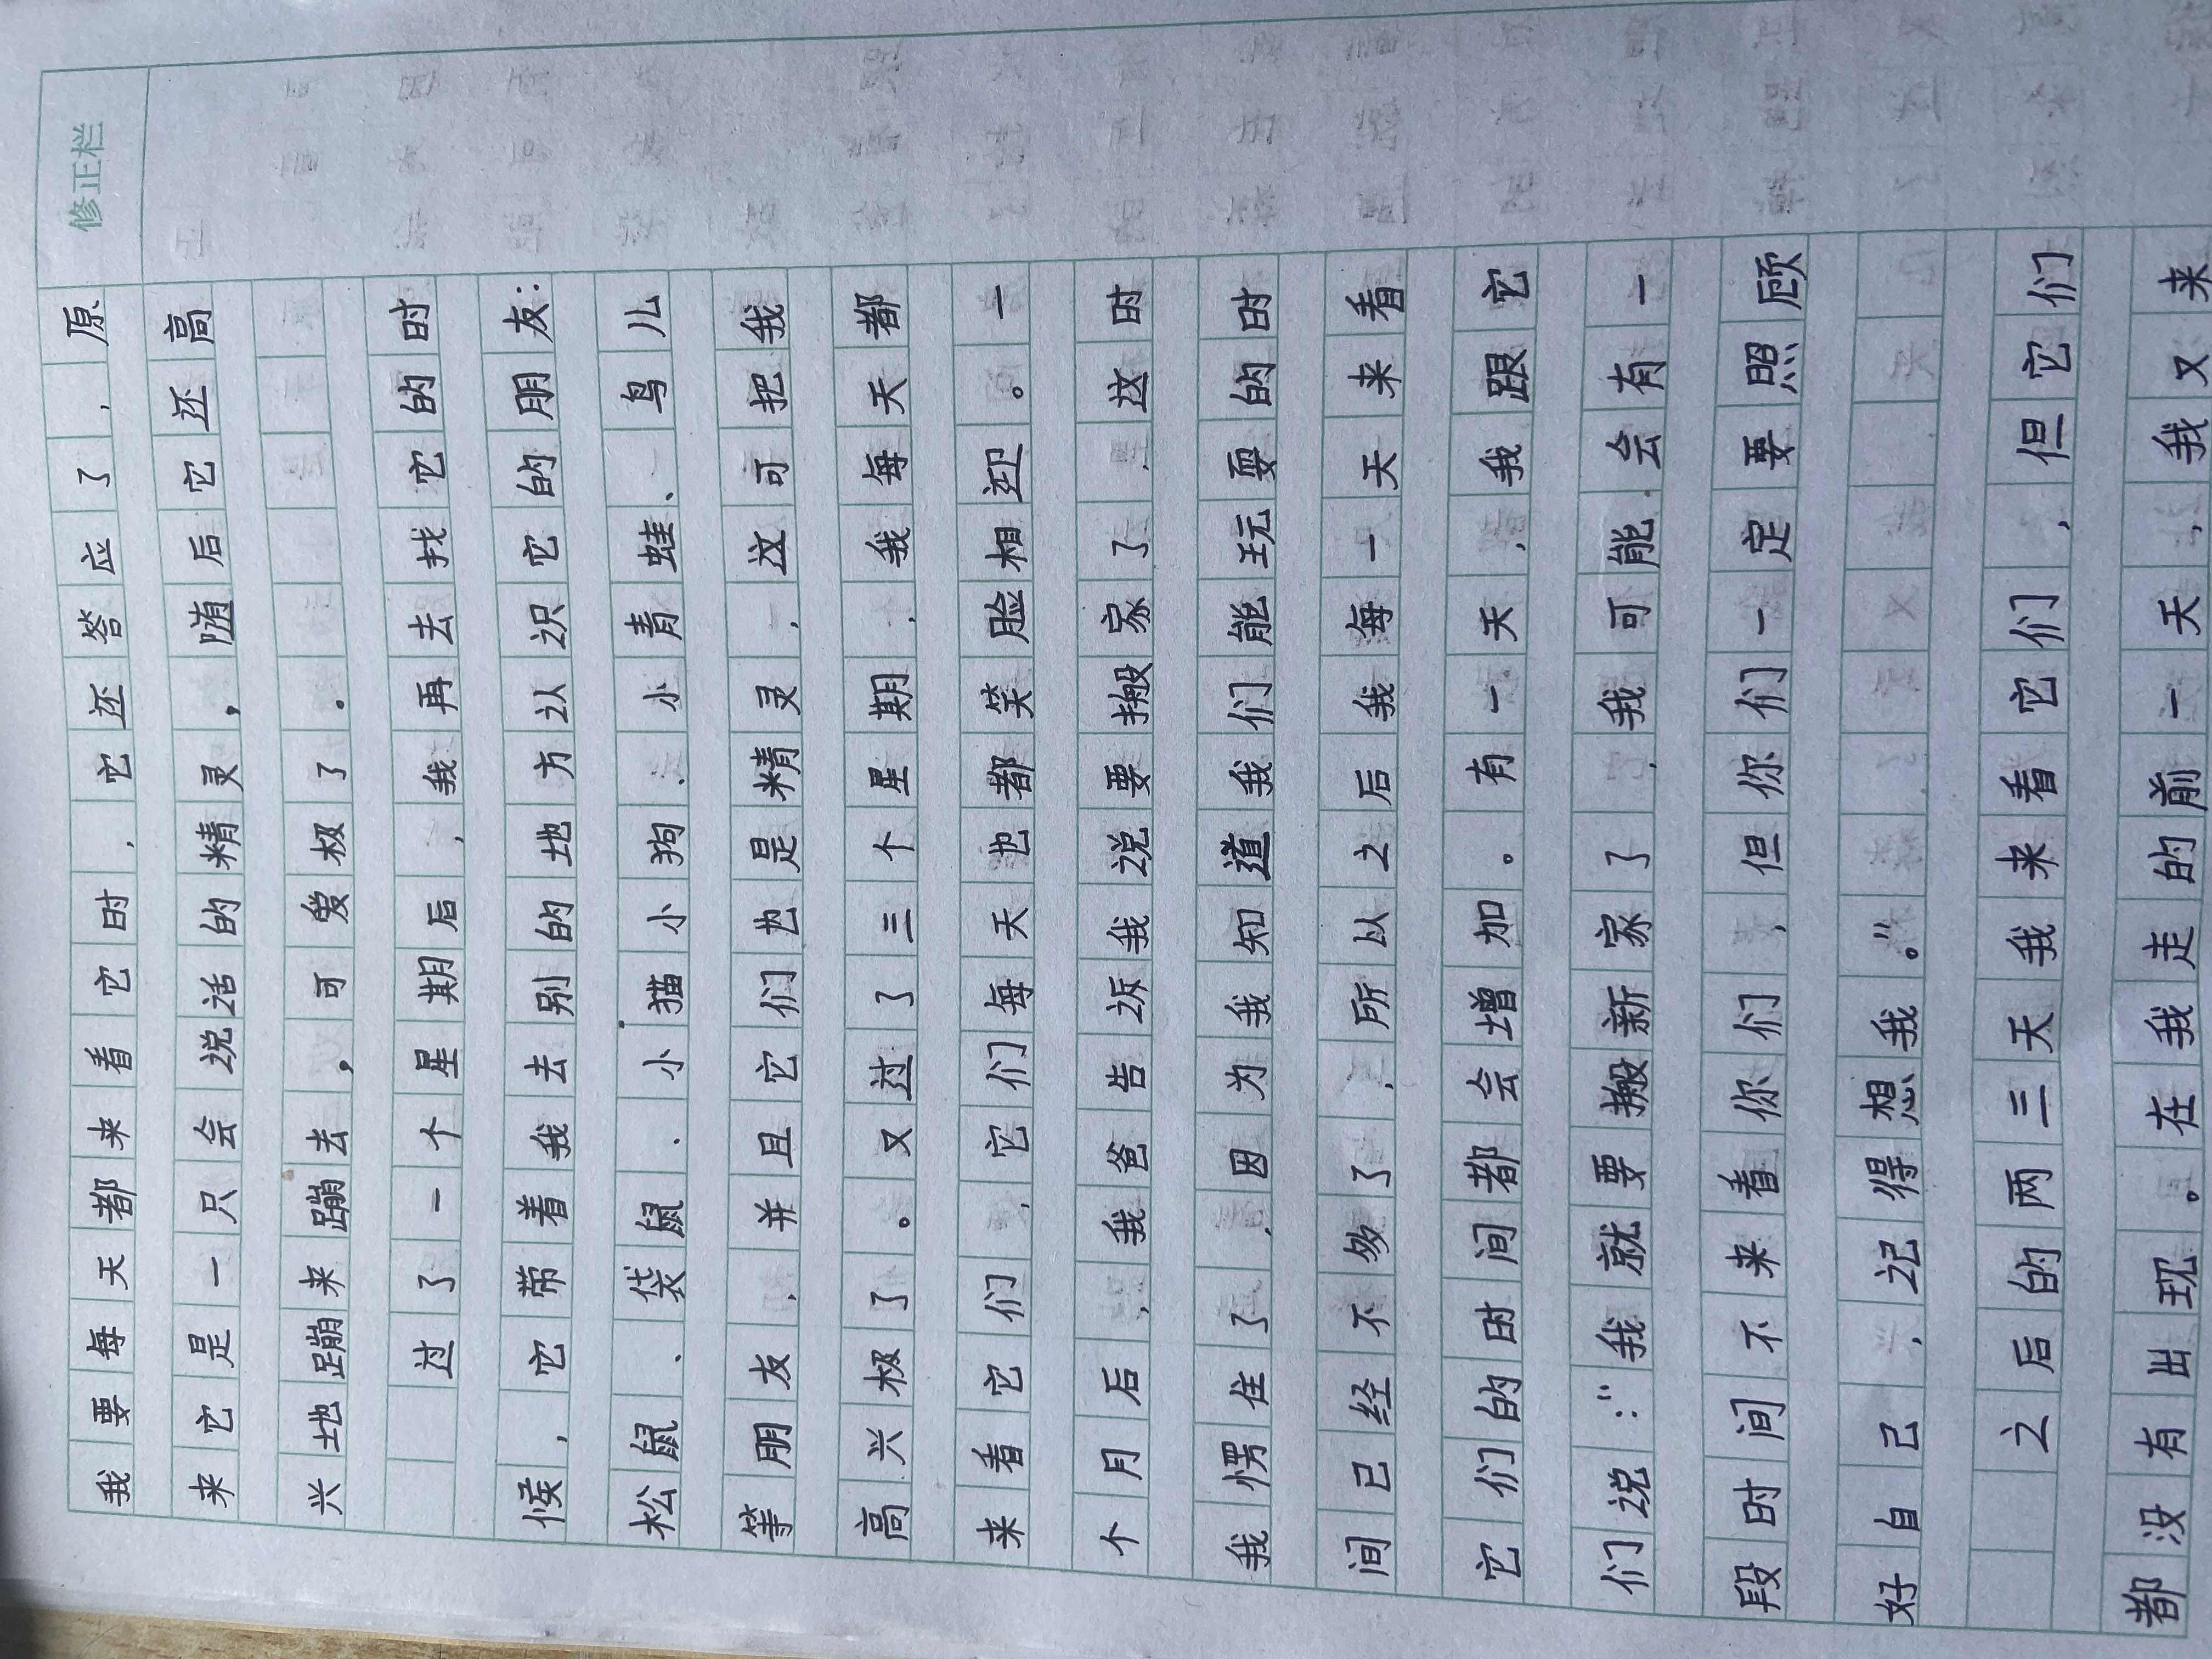 修正栏
我要每天都来看它时，它还答应了，原
来它是一只会说话的精灵，随后它还高
兴地蹦来蹦去，可爱极了。
过了一个星期后，我再去找它的时
候，它带着我去别的地方认识它的朋友：
松鼠、袋鼠、小猫、小狗、小青蛙、鸟儿
等朋友，并且它们也是精灵，这可把我
高兴极了。又过了三个星期，我每天都
来看它们，它们每天也都笑脸相迎。一
个月后，我爸告诉我说要搬家了，这时
我愣住了，因为我知道我们能玩耍的时
间已经不多了，所以之后我每一天来看
它们的时间都会增加。有一天，我跟它
们说：“我就要搬新家了，我可能会有一
段时间不来看你们，但你们一定要照顾
好自己，记得想我。”
之后的两三天我来看它们，但它们
都没有出现。在我走的前一天，我又来